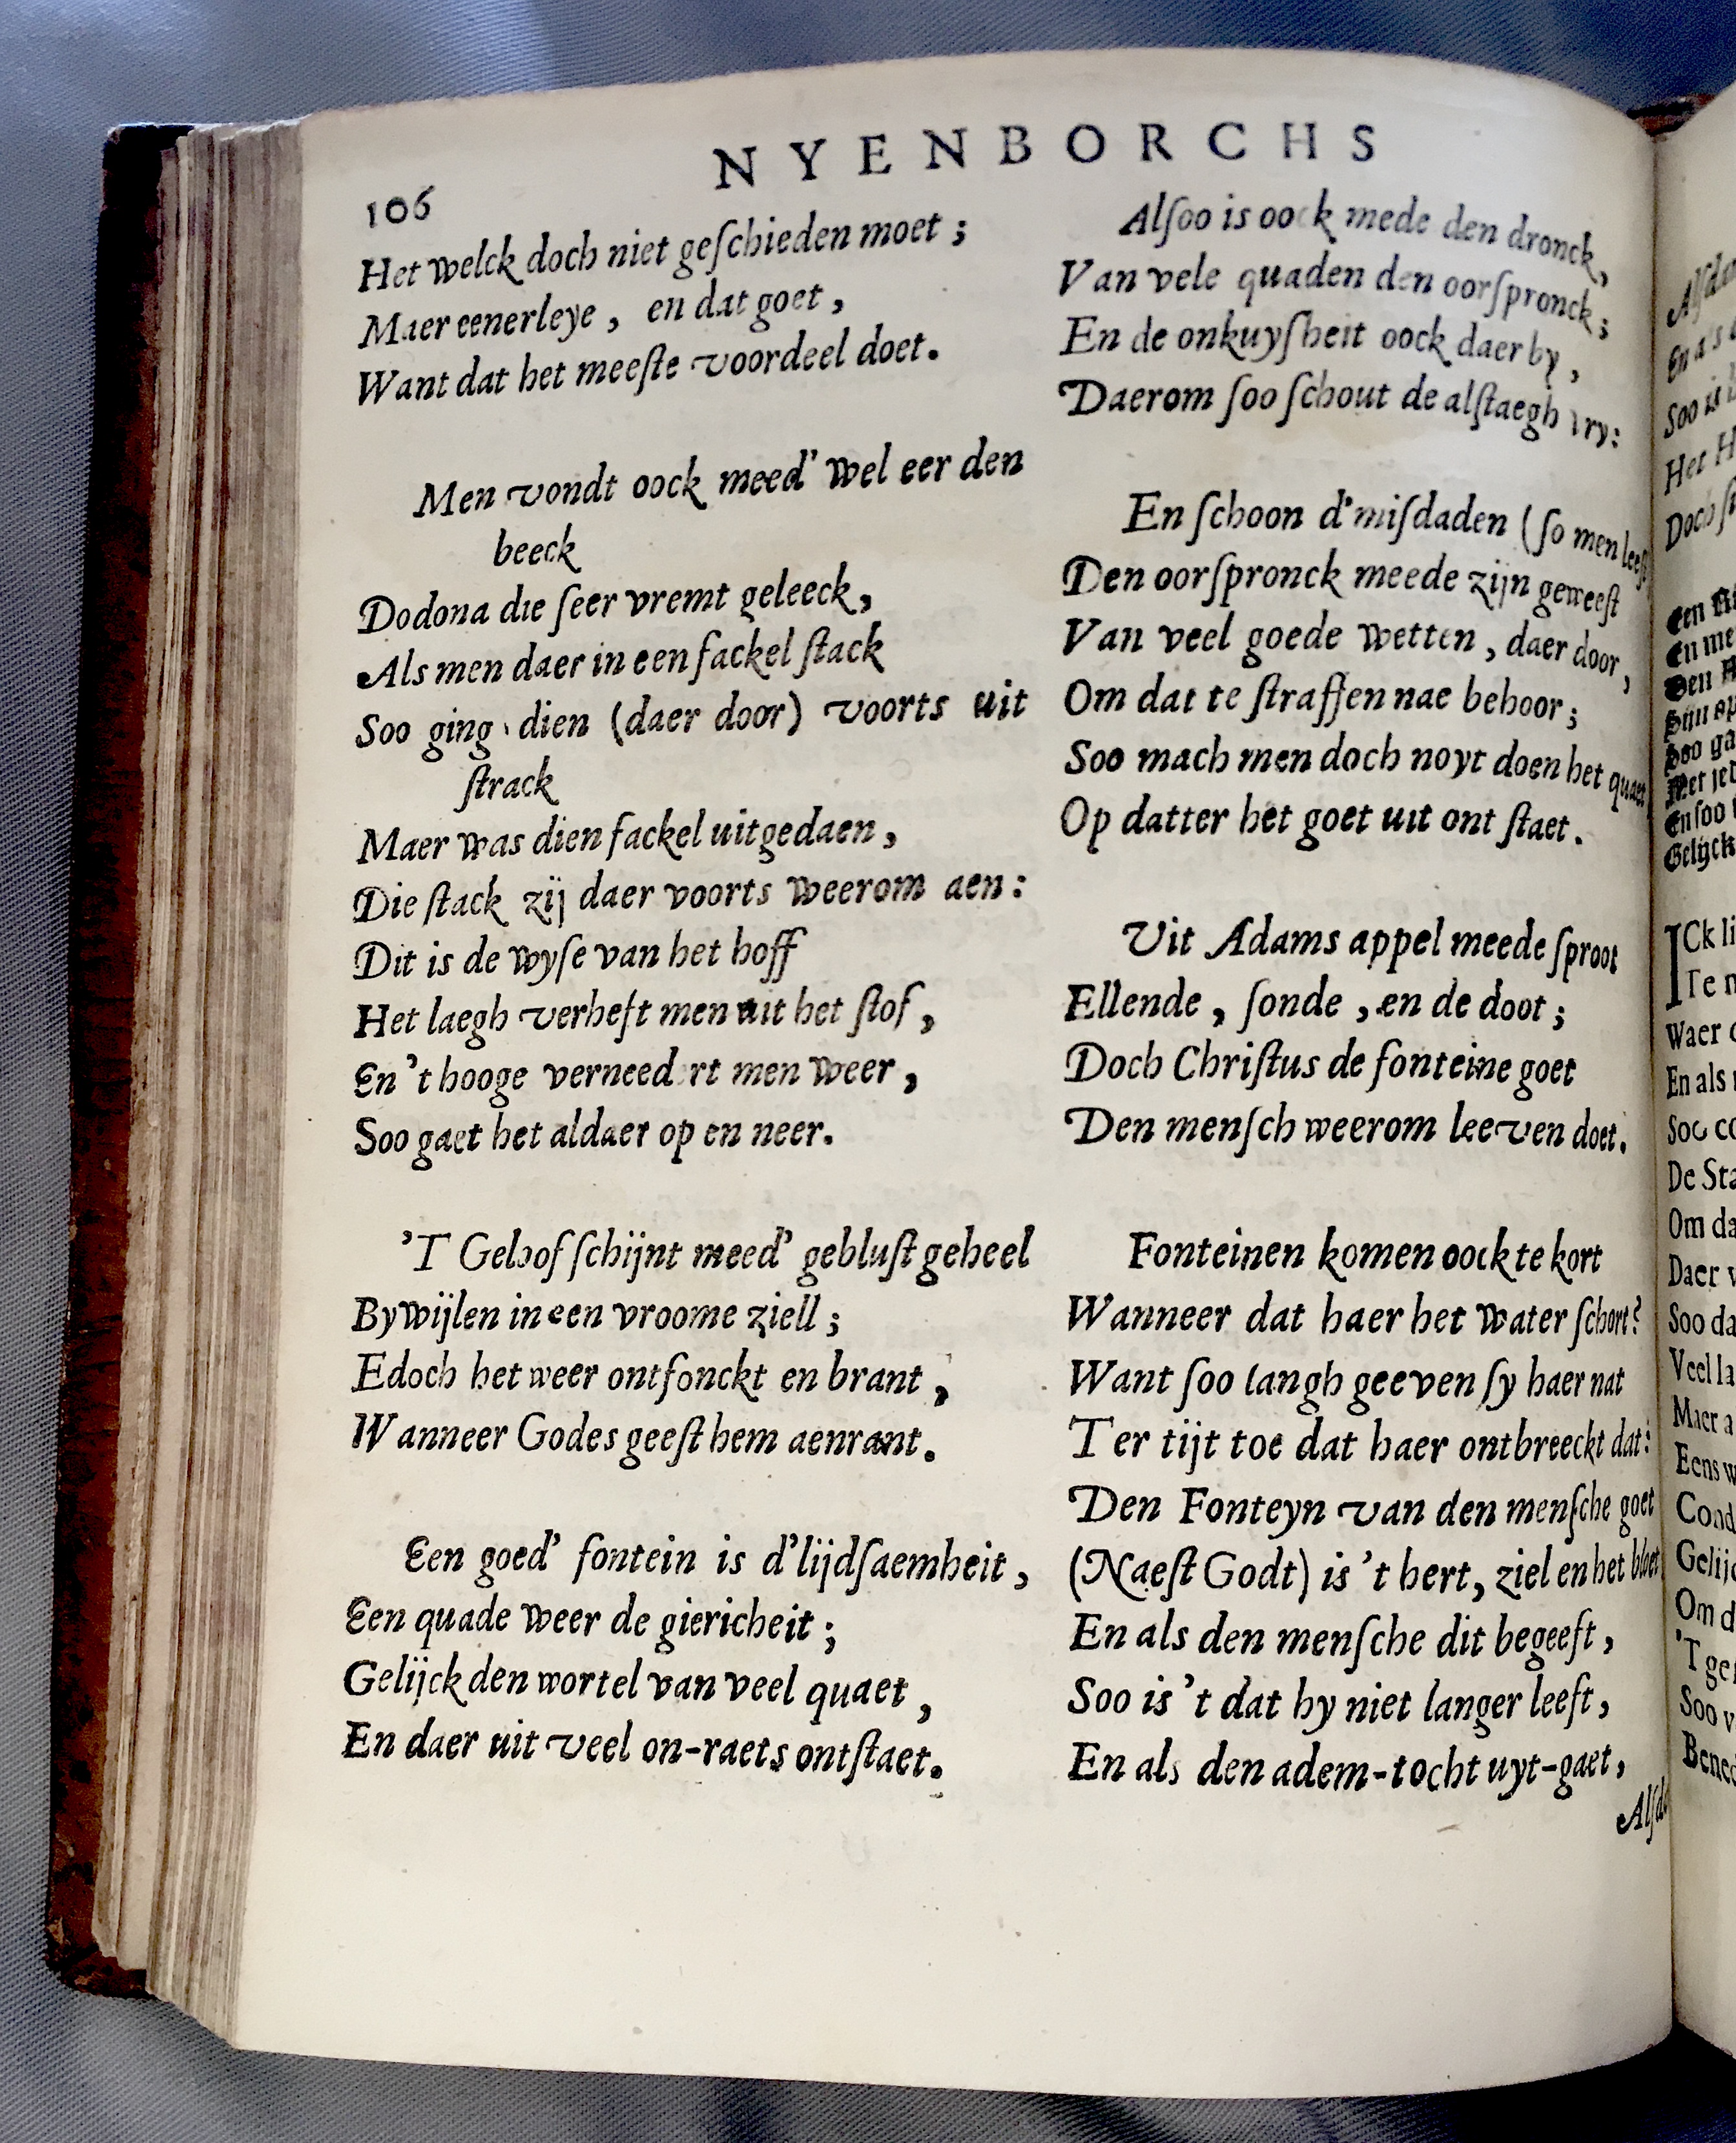 NYENBORCHS
106
Het welck doch niet geſchieden moet ;
Maer eenerleye , en dat goet ,
Want dat het meeſte voordeel doet.
Men vondt oock meed' wel eer den
beeck
Dodona die ſeer vremt geleeck,
Als men daer in een fackel ſtack
Soo ging dien (daer door) voorts uit
ſtrack
Maer was dien fackel uitgedaen ,
Die ſtack zij daer voorts weerom aen :
Dit is de wyſe van het hoff
Het laegh verheft men uit het ſtof ,
En 't hooge verneedert men weer ,
Soo gaet het aldaer op en neer.
'T Geloof ſchijnt meed' gebluſt geheel
Bywijlen in een vroome ziell ;
Edoch het weer ontfonckt en brant ,
Wanneer Godes geeſt hem aenrant.
Een goed' fontein is d'lijdſaemheit ,
Een quade weer de giericheit ;
Gelijck den wortel van veel quaet ,
En daer uit veel on-raets ontſtaet.
Alſoo is oock mede den dronck,
Van vele quaden den oorſpronck;
En de onkuyſheit oock daer by ,
Daerom ſoo ſchout de alſtaegh vry:
En ſchoon d'miſdaden (ſo men leeſt
Den oorſpronck meede zijn geweeſt
Van veel goede wetten , daer door ,
Om dat te ſtraffen nae behoor ;
Soo mach men doch noyt doen het quaet
Op datter het goet uit ont ſtaet .
Uit Adams appel meede ſproot
Ellende , ſonde , en de doot ;
Doch Chriſtus de fonteine goet
Den menſch weerom leeven doet.
Fonteinen komen oock te kort
Wanneer dat haer het water ſchort?
Want ſoo langh geeven ſy haer nat
Ter tijt toe dat haer ontbreeckt dat:
Den Fonteyn van den menſche goet
(Naeſt Godt) is 't hert, ziel en het bloet
En als den menſche dit begeeft ,
Soo is 't dat hy niet langer leeft ,
En als den adem-tocht uyt-gaet ,
Alſd
Alſda
En als
Soo is
Het H
Doch
Een
En me
Den
Soo ga
Met
En ſoo
Gelijck
ICk li
Te
Waer
En als
Soo
De Sta
Om da
Daer
Soo da
Veel la
Maer a
Eens w
Cond
Gelijc
Om d
'T ge
Soo v
Bened